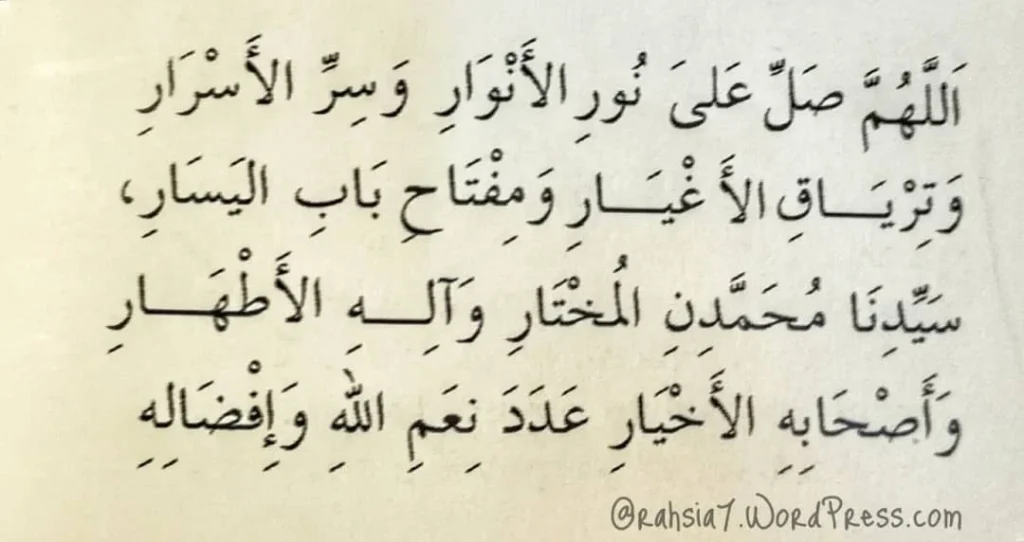 اَللَّهُمَّ صَلِّ عَلىَ نُورِ الأَنْوَارِ وَسِرِّ الأَسْرَارِ
وَتِرْيَـــاقِ الأَغْيَـــارِ وَمِفْتَاحِ بَابِ اليَسَارِ،
سَيِّدِنَا مُحَمَّدِنِ المُخْتَارِ وَآلِـــهِ الأَطْهَـــارِ
وَأَصْحَابِهِ الأَخْيَارِ عَدَدَ نِعَمِ اللهِ وَإِفْضَالِهِ
@rahsia7.WordPress.com